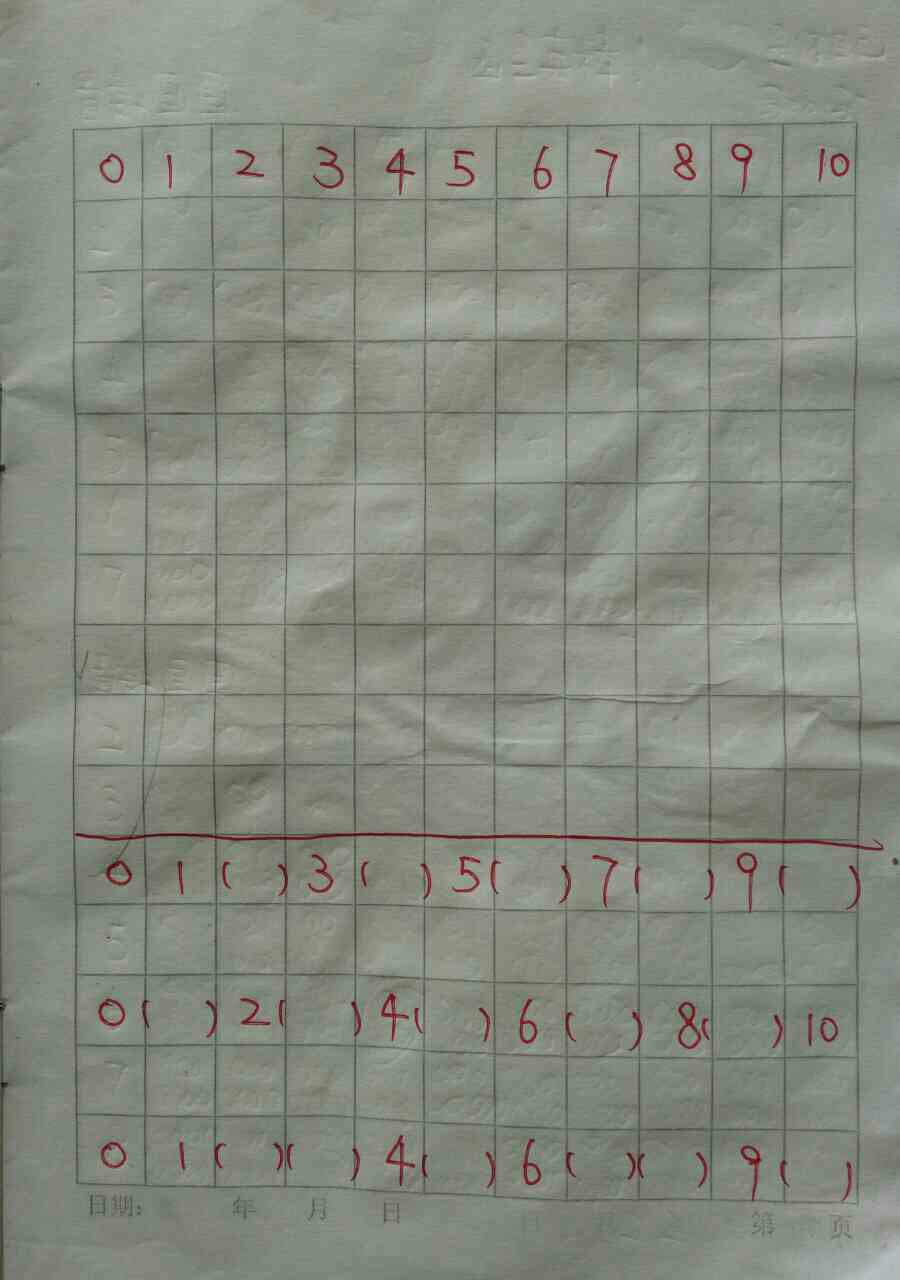 0 1 2 3 4 5 6 7 8 9 10
0 1 ( ) 3 ( ) 5 ( ) 7 ( ) 9 ( )
0 ( ) 2 ( ) 4 ( ) 6 ( ) 8 ( ) 10
0 1 ( ) ( ) 4 ( ) 6 ( ) ( ) 9 ( )
日期: 年 月 日 第 页